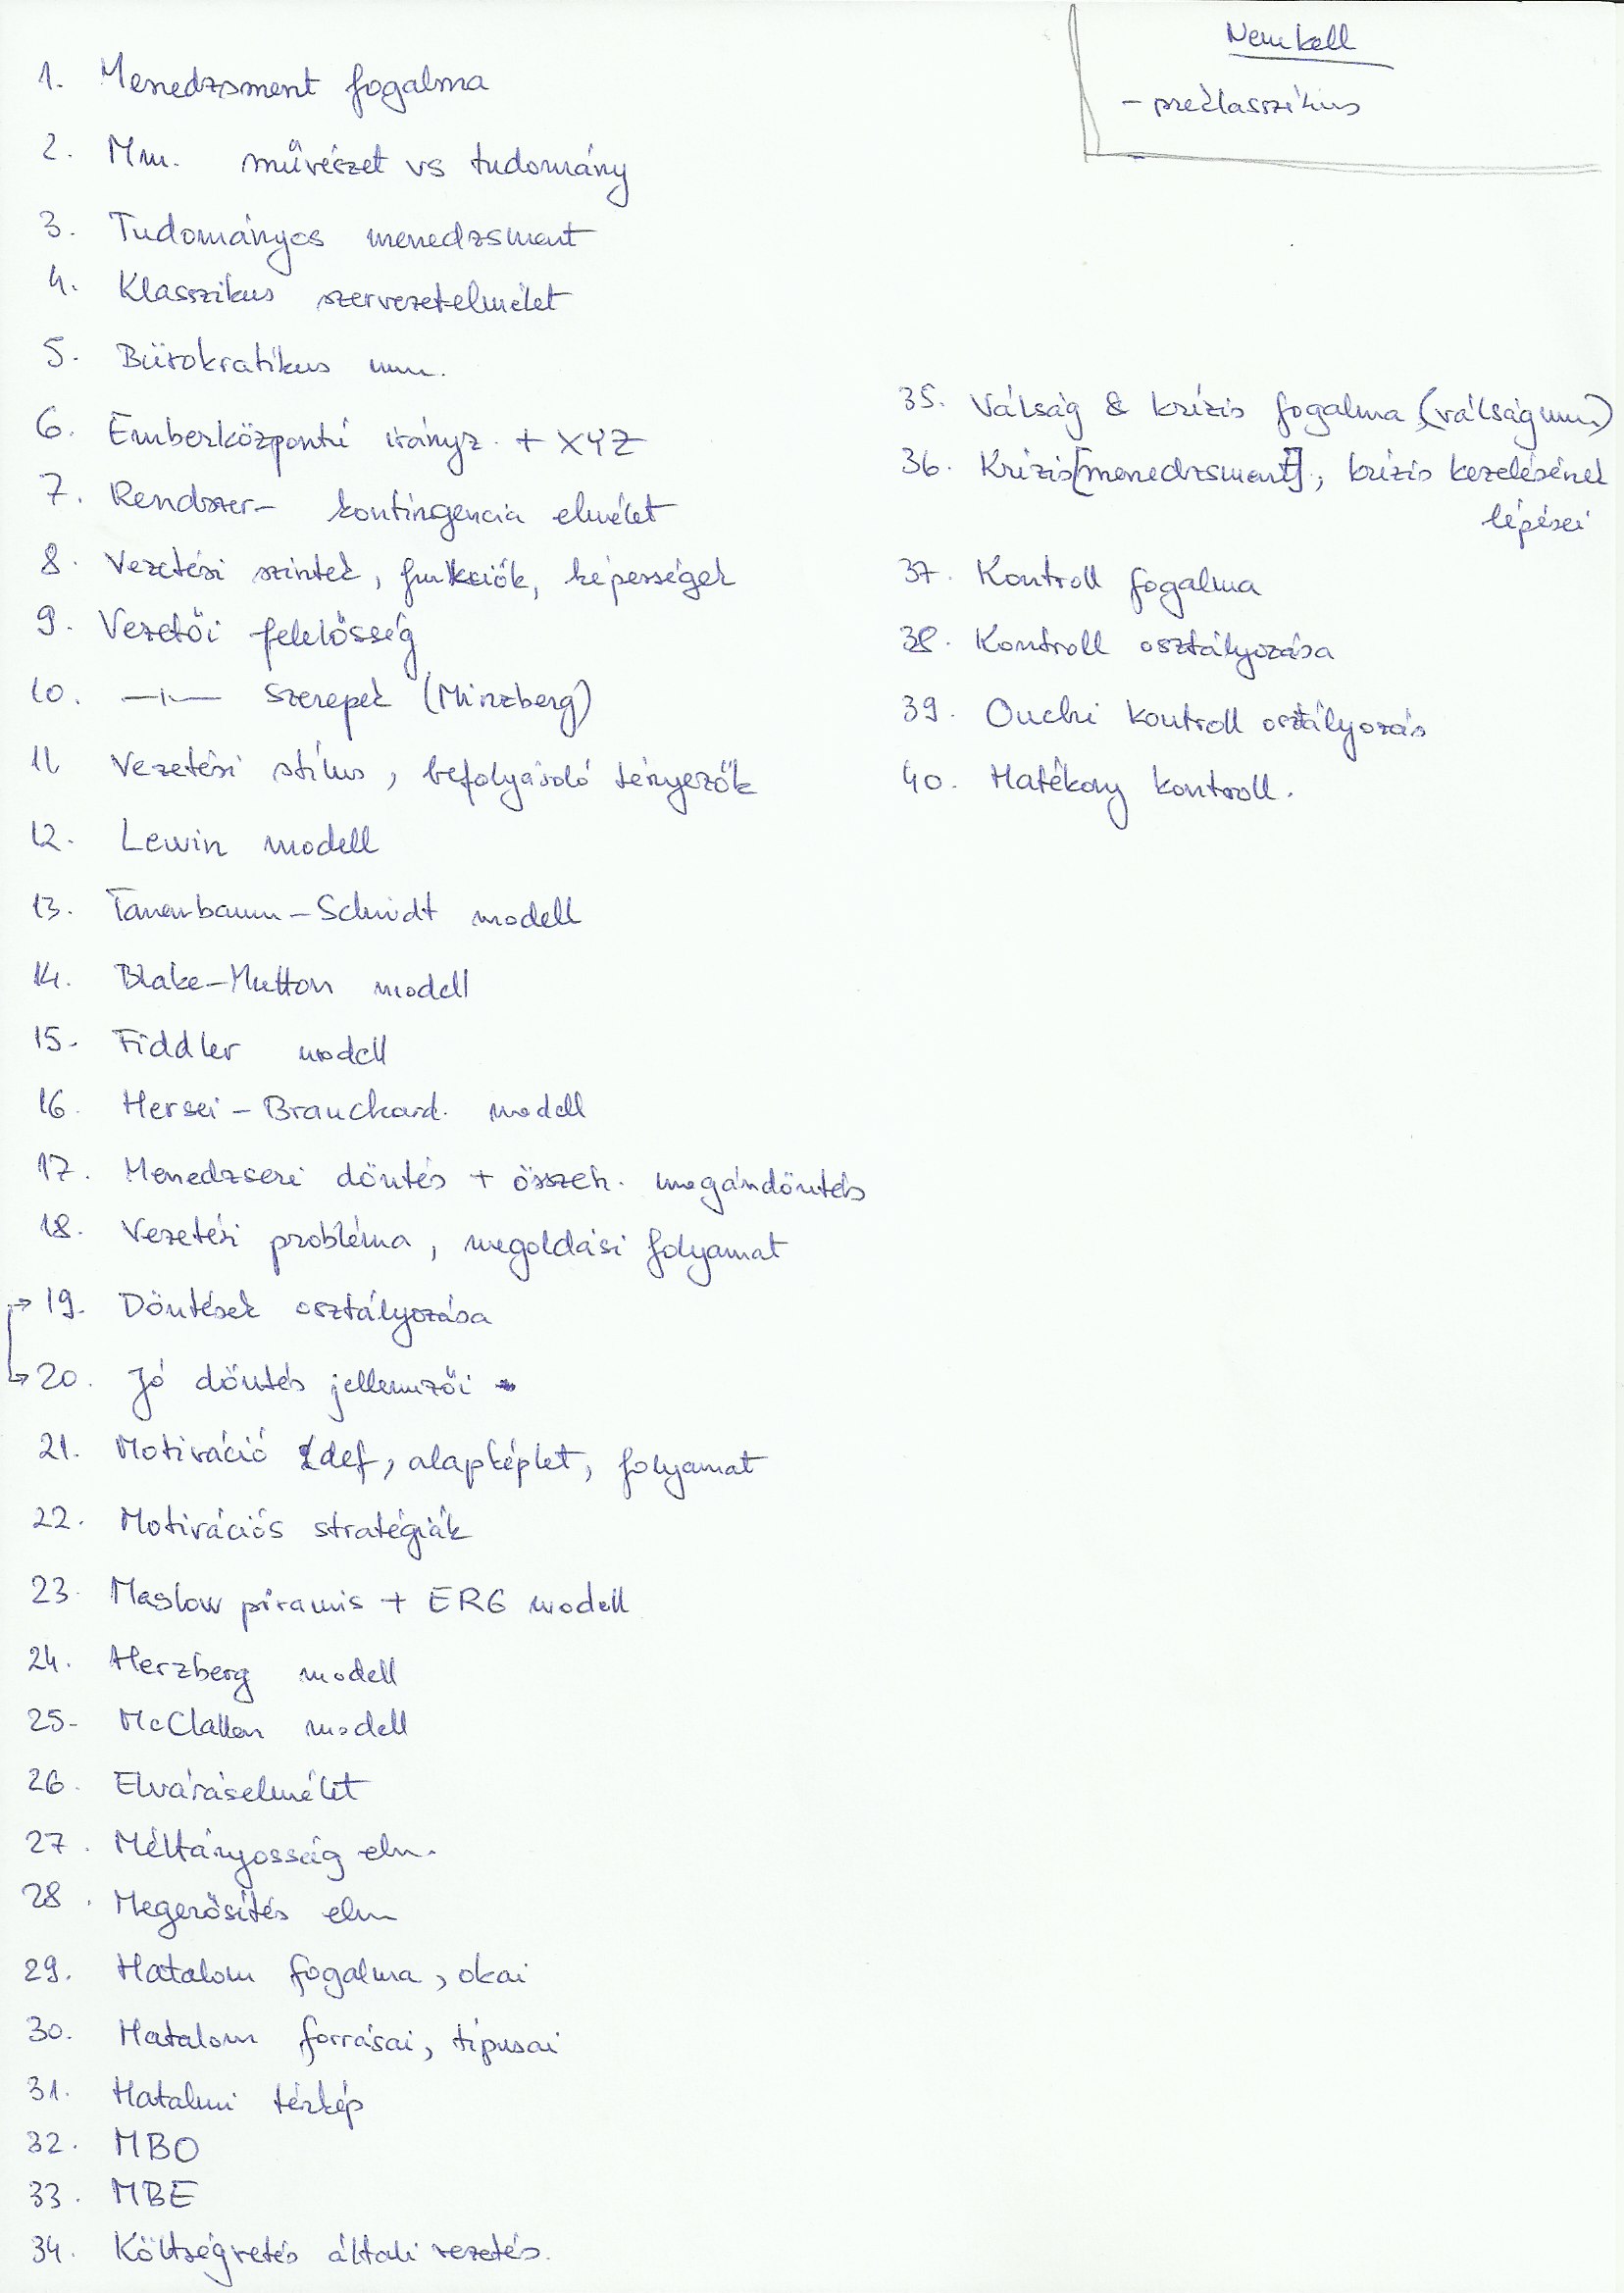 Nem kell
- preklasszikus
1. Menedzsment fogalma
2. Mm. művészet vs tudomány
3. Tudományos menedzsment
4. Klasszikus szervezetelmélet
5. Bürokratikus mm.
6. Emberközpontú irányz. + XYZ
7. Rendszer- kontingencia elmélet
8. Vezetési szintek, funkciók, képességek
9. Vezetői felelősség
10. —||— szerepek (Minzberg)
11 Vezetési stílus, befolyásoló tényezők
12. Lewin modell
13. Tanenbaum-Schmidt modell
14. Blake-Mutton modell
15. Fiddler modell
16. Hersei - Branchard. modell
17. Menedzseri döntés + összeh. magándöntés
18. Vezetési probléma, megoldási folyamat
→ 19. Döntések osztályozása
→ 20. Jó döntés jellemzői
21. Motiváció def, alapképlet, folyamat
22. Motivációs stratégiák
23. Maslow piramis + ERG modell
24. Herzberg modell
25. McClallan modell
26. Elváráselmélet
27. Méltányosság elm.
28. Megerősítés elm
29. Hatalom fogalma, okai
30. Hatalom forrásai, típusai
31. Hatalmi térkép
32. MBO
33. MBE
34. Költségvetés általi vezetés.
35. Válság & krízis fogalma (válságmm.)
36. Krízis[menedzsment]; krízis kezelésének
lépései
37. Kontroll fogalma
38. Kontroll osztályozása
39. Ouchi kontroll osztályozás
40. Hatékony kontroll.